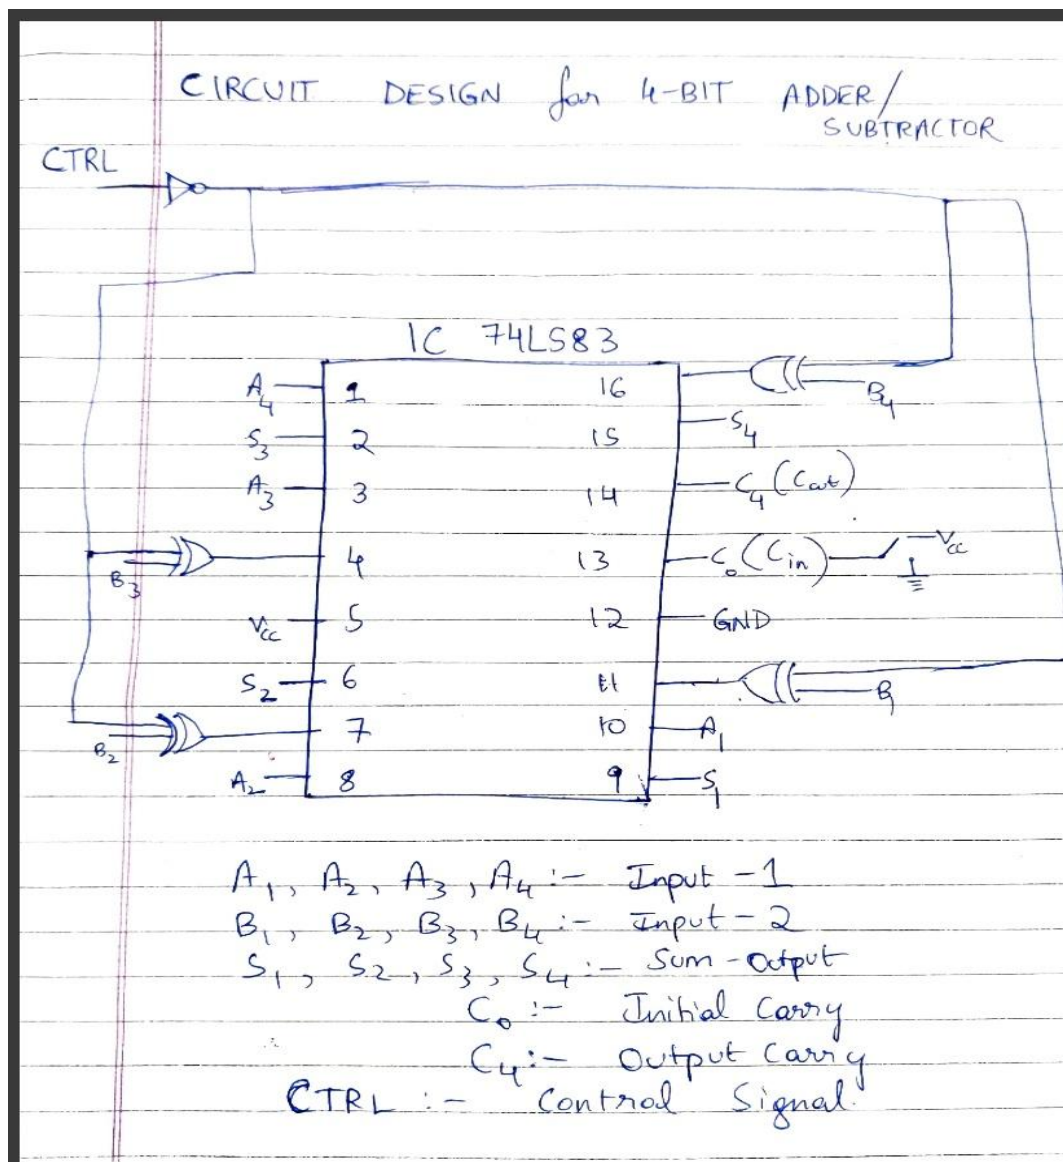 CIRCUIT DESIGN for 4-BIT ADDER/
SUBTRACTOR
CTRL
IC 74LS83
A4 1 16 B4
S3 2 15 S4
A3 3 14 C4 (Cout)
B3 4 13 C0 (Cin) Vcc
Vcc 5 12 GND
S2 6 11 B1
B2 7 10 A1
A2 8 9 S1
A1, A2, A3, A4 :- Input - 1
B1, B2, B3, B4 :- Input - 2
S1, S2, S3, S4 :- Sum - Output
C0 :- Initial Carry
C4 :- Output Carry
CTRL :- Control Signal.